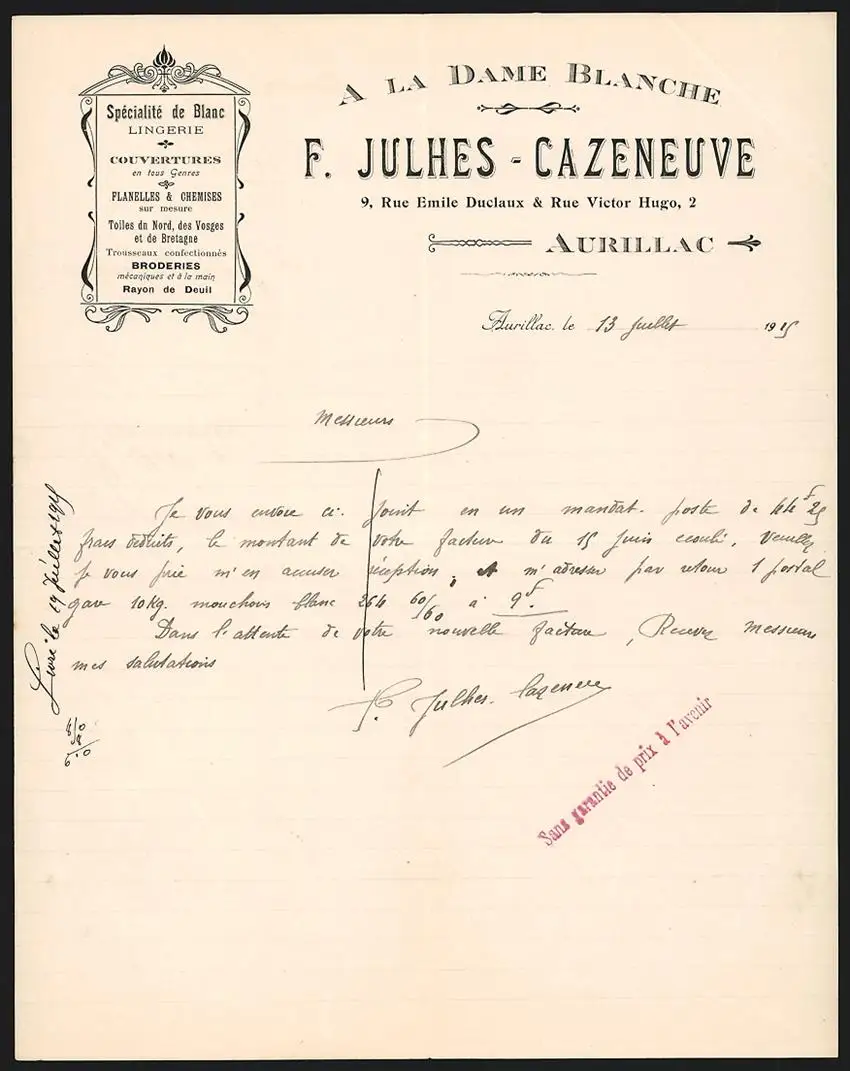 Spécialité de Blanc
LINGERIE
COUVERTURES
en tous Genres
FLANELLES & CHEMISES
sur mesure
Toiles du Nord, des Vosges
et de Bretagne
Trousseaux confectionnés
BRODERIES
mécaniques et à la main
Rayon de Deuil
A LA DAME BLANCHE
F. JULHES - CAZENEUVE
9, Rue Emile Duclaux & Rue Victor Hugo, 2
AURILLAC
Aurillac, le 13 Juillet 1915
Messieurs
Je vous envoie ci. joint en un mandat. poste de 44F 25
frais déduits, le montant de votre facture du 15 Juin écoulé, veuillez
je vous prie m'en accuser réception, et m'adresser par retour 1 postal
gare 10 Kg. mouchoirs blanc 264 60/60 à 9F.
Dans l'attente de votre nouvelle facture, Recevez Messieurs
mes salutations
F. Julhes. Cazeneuve
Livré le 19 Juillet 1915
Sans garantie de prix à l'avenir